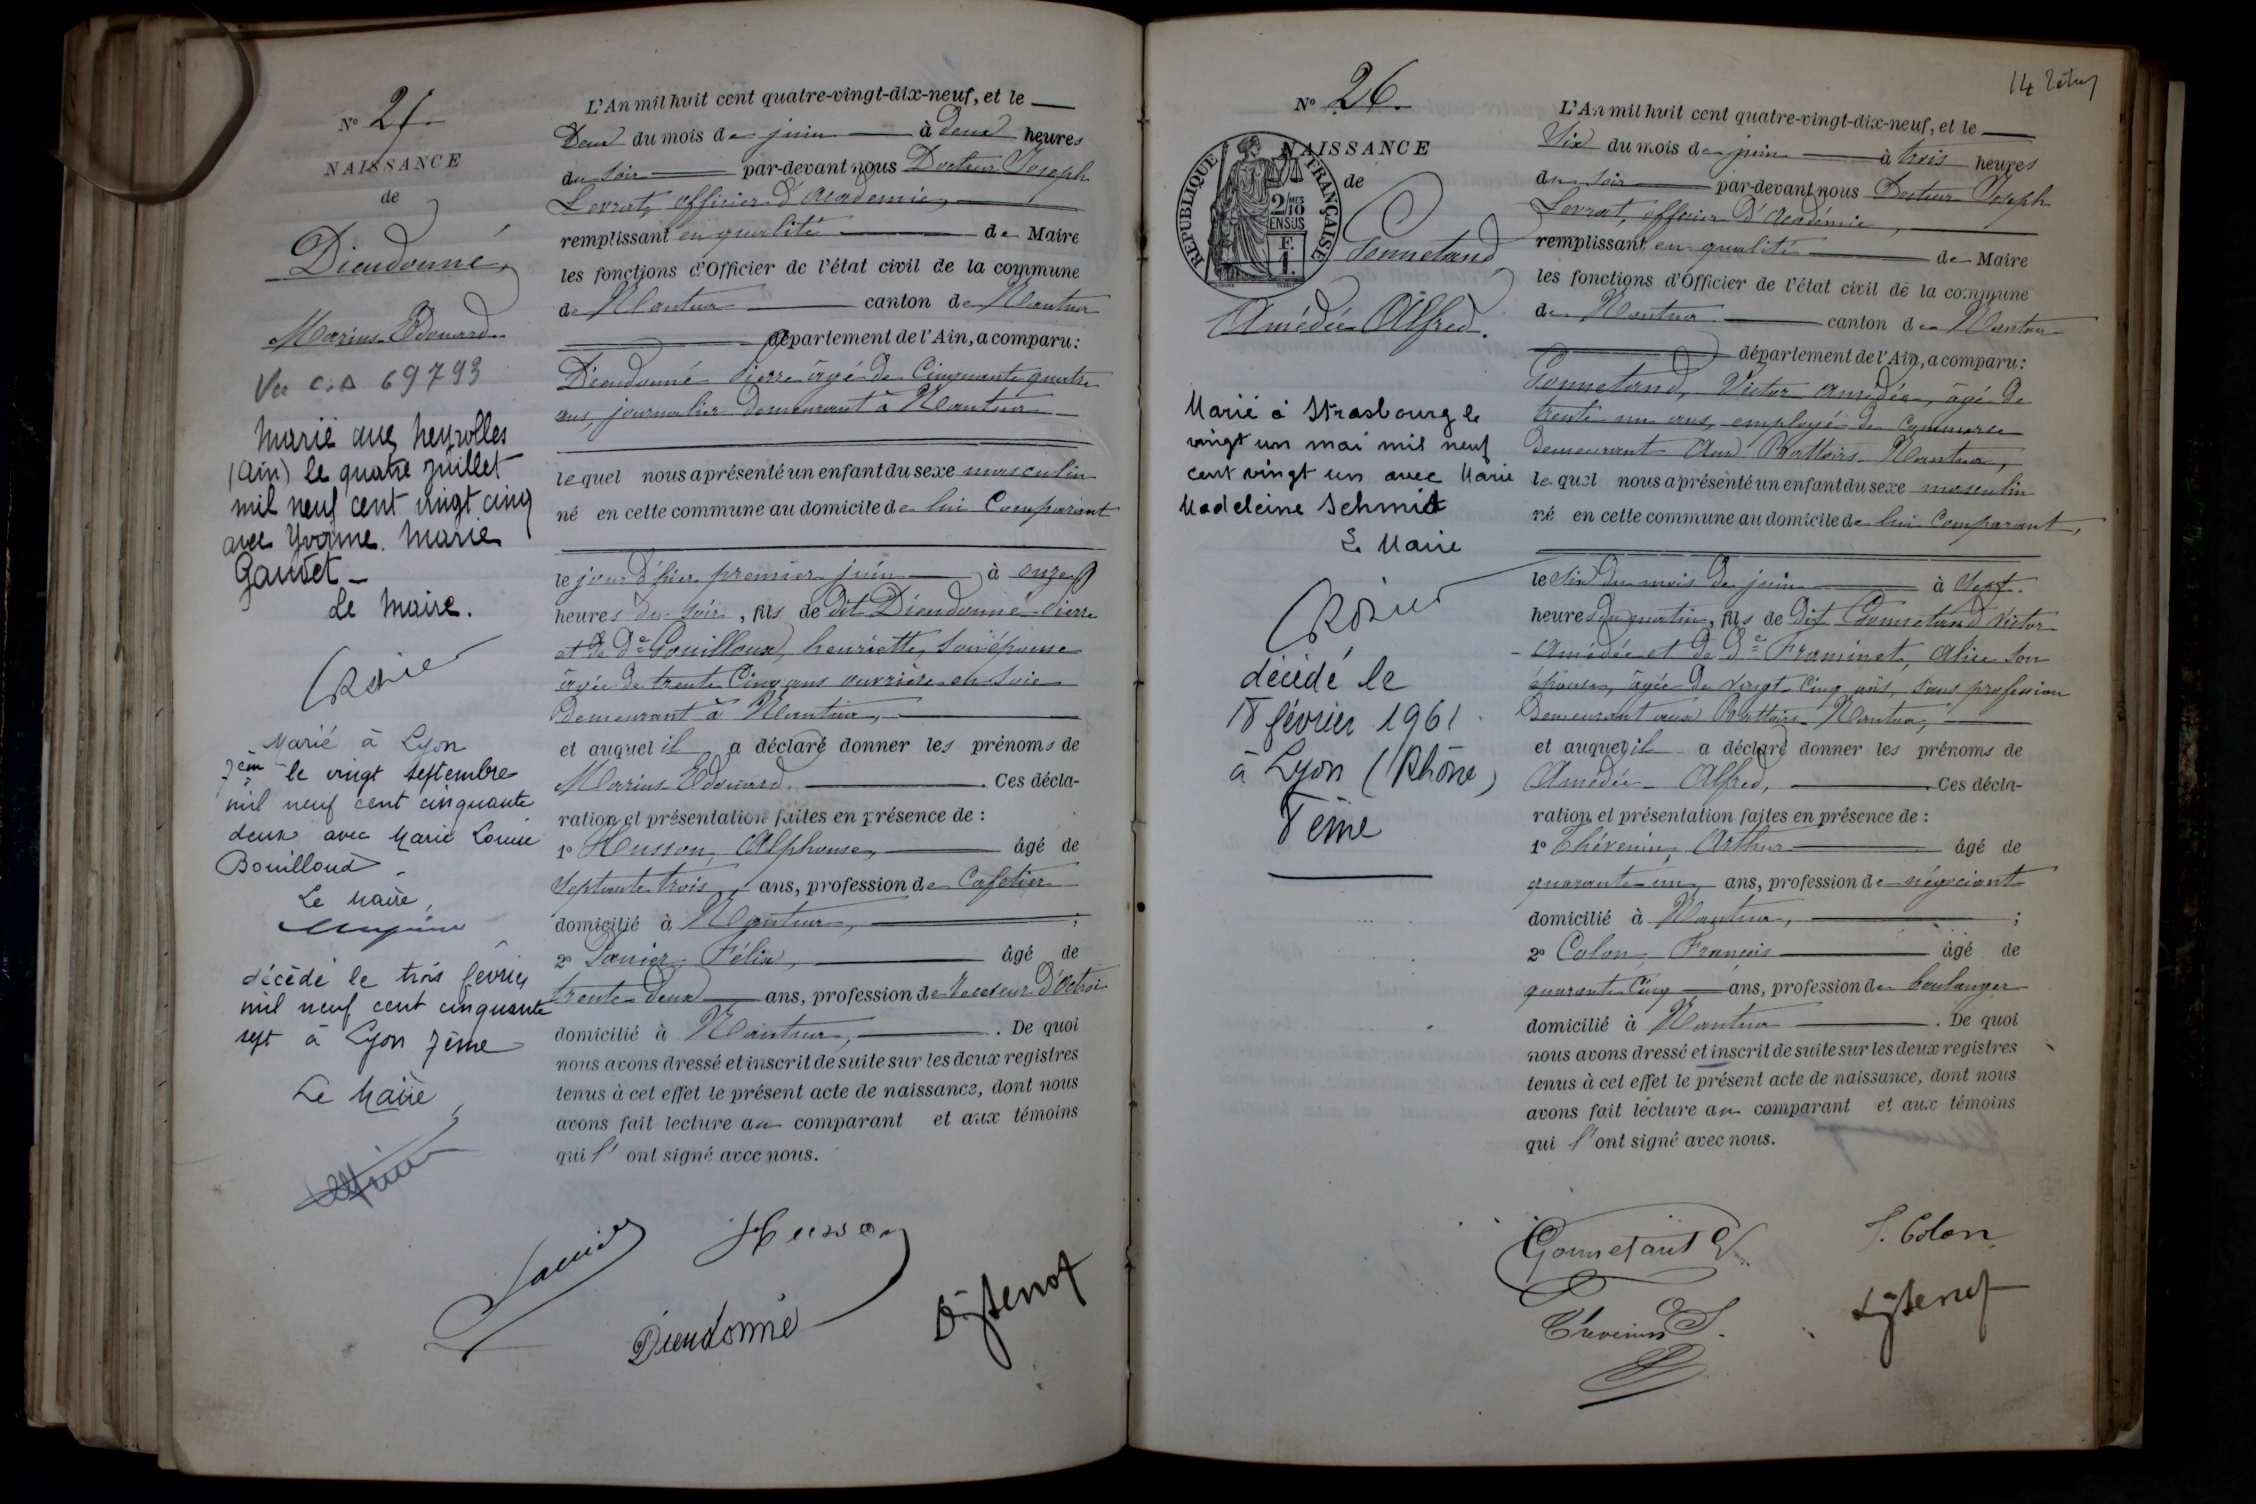 N° 25.
NAISSANCE
de
Dieudonné,
Marius Edouard.
Vu C.D 69793
Marié aux Neyrolles
(Ain) le quatre Juillet
mil neuf cent vingt cinq
avec Yvonne Marie
Le Maire.
Marié à Lyon
7em le vingt septembre
mil neuf cent cinquante
deux avec Marie Louise
Bouilloud
Le Maire,
décédé le trois février
mil neuf cent cinquante
sept à Lyon 7ème
Le Maire
L'An mil huit cent quatre-vingt-dix-neuf, et le
Deux du mois de juin à deux heures
du soir par-devant nous Docteur Joseph
Levrat, officier d'académie,
remplissant en qualité de Maire
les fonctions d'Officier de l'état civil de la commune
de Nantua canton de Nantua
département de l'Ain, a comparu:
Dieudonné Pierre âgé de Cinquante quatre
ans, journalier demeurant à Nantua
lequel nous a présenté un enfant du sexe masculin
né en cette commune au domicile de lui Comparant
le jour d'hier premier juin à onze
heures du soir, fils de dit Dieudonné Pierre
et de De Gouilloux, henriette, son épouse
âgée de trente Cinq ans ouvrière en soie
demeurant à Nantua,
et auquel il a déclaré donner les prénoms de
Marius Edouard. Ces décla-
ration et présentation faites en présence de :
1° Husson, Alphonse, âgé de
septante trois ans, profession de Cafetier
domicilié à Nantua, ;
2° Janier Félix, âgé de
trente deux ans, profession de receveur d'octroi
domicilié à Nantua, . De quoi
nous avons dressé et inscrit de suite sur les deux registres
tenus à cet effet le présent acte de naissance, dont nous
avons fait lecture au comparant et aux témoins
qui l' ont signé avec nous.
Janier Husson
Dieudonné
N° 26.
NAISSANCE
de
REPUBLIQUE FRANÇAISE
2 MES 10
EN SUS
F.
1.
Gonnetand
Amédée Alfred.
Marié à Strasbourg le
vingt un mai mil neuf
cent vingt un avec Marie
Madeleine Schmidt
Le Maire
décédé le
18 février 1961
à Lyon (Rhône)
8ème
L'An mil huit cent quatre-vingt-dix-neuf, et le
Six du mois de juin à trois heures
du soir par-devant nous Docteur Joseph
Levrat, officier d'Académie,
remplissant en qualité de Maire
les fonctions d'Officier de l'état civil de la commune
de Nantua canton de Nantua
département de l'Ain, a comparu:
Gonnetand, Victor Amédée, âgé de
trente un ans, employé de Commerce
demeurant aux Battoirs Nantua,
lequel nous a présenté un enfant du sexe masculin
né en cette commune au domicile de lui Comparant,
le six du mois de juin à sept
heures du matin, fils de dit Gonnetand Victor
Amédée et de De Framinet, Alice son
épouse, âgée de vingt cinq ans, sans profession
demeurant aux Battoirs Nantua,
et auquel il a déclaré donner les prénoms de
Amédée Alfred, . Ces décla-
ration et présentation faites en présence de :
1° Thévenin, Arthur âgé de
quarante un, ans, profession de négociant
domicilié à Nantua, ;
2° Colon, François âgé de
quarante Cinq ans, profession de boulanger
domicilié à Nantua . De quoi
nous avons dressé et inscrit de suite sur les deux registres
tenus à cet effet le présent acte de naissance, dont nous
avons fait lecture au comparant et aux témoins
qui l' ont signé avec nous.
F. Colon